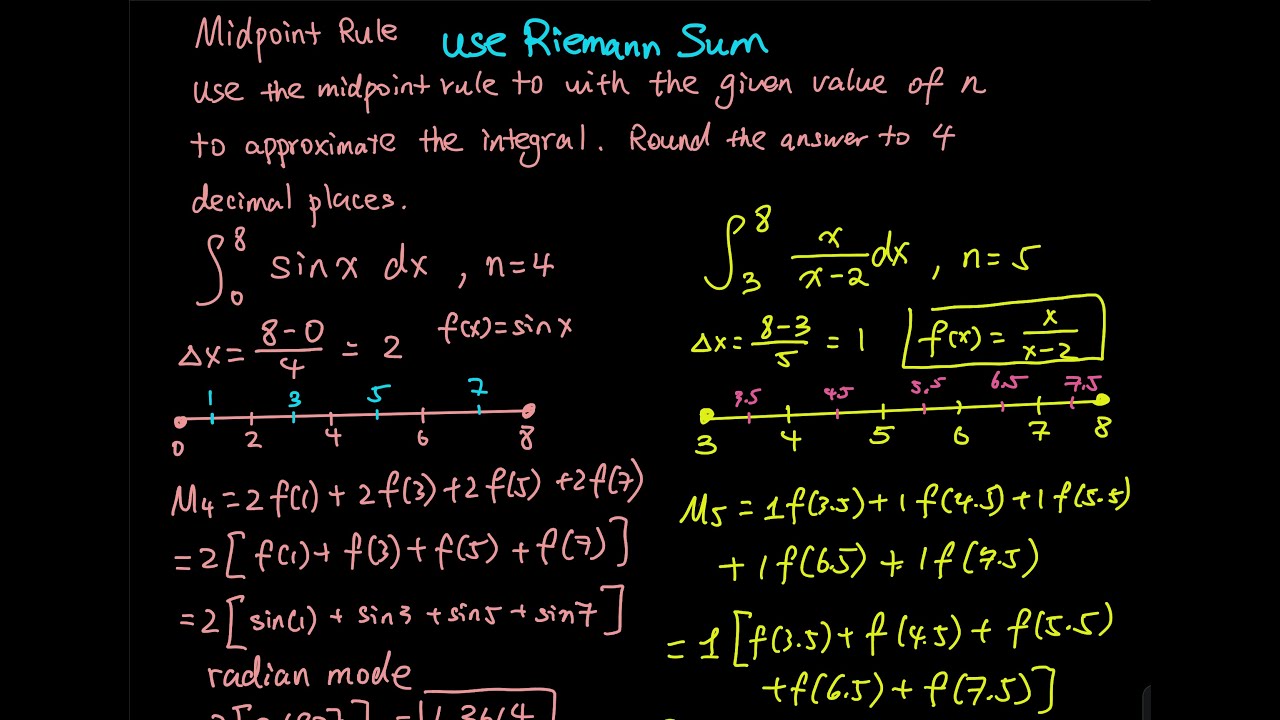 Midpoint Rule use Riemann Sum
use the midpoint rule to with the given value of n
to approximate the integral. Round the answer to 4
decimal places.
∫₀⁸ sinx dx , n=4
Δx = (8-0)/4 = 2 f(x)=sinx
1 3 5 7
0 2 4 6 8
M₄ = 2f(1) + 2f(3) + 2f(5) + 2f(7)
= 2[f(1) + f(3) + f(5) + f(7)]
= 2[sin(1) + sin3 + sin5 + sin7]
radian mode
∫₃⁸ x/(x-2) dx , n=5
Δx = (8-3)/5 = 1 f(x) = x/(x-2)
3.5 4.5 5.5 6.5 7.5
3 4 5 6 7 8
M₅ = 1f(3.5) + 1f(4.5) + 1f(5.5)
+ 1f(6.5) + 1f(7.5)
= 1[f(3.5) + f(4.5) + f(5.5)
+ f(6.5) + f(7.5)]